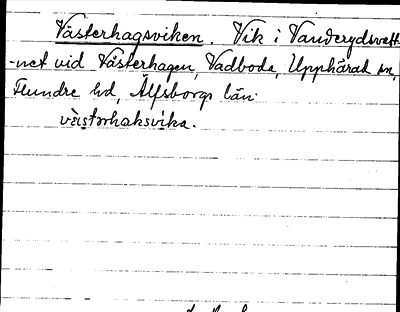 Västerhagsviken. Vik i Vanderydsvatt-
-net vid Västerhagen, Vadboda, Upphärad sn,
Flundre hd, Älfsborgs län.
västərhaksvika.